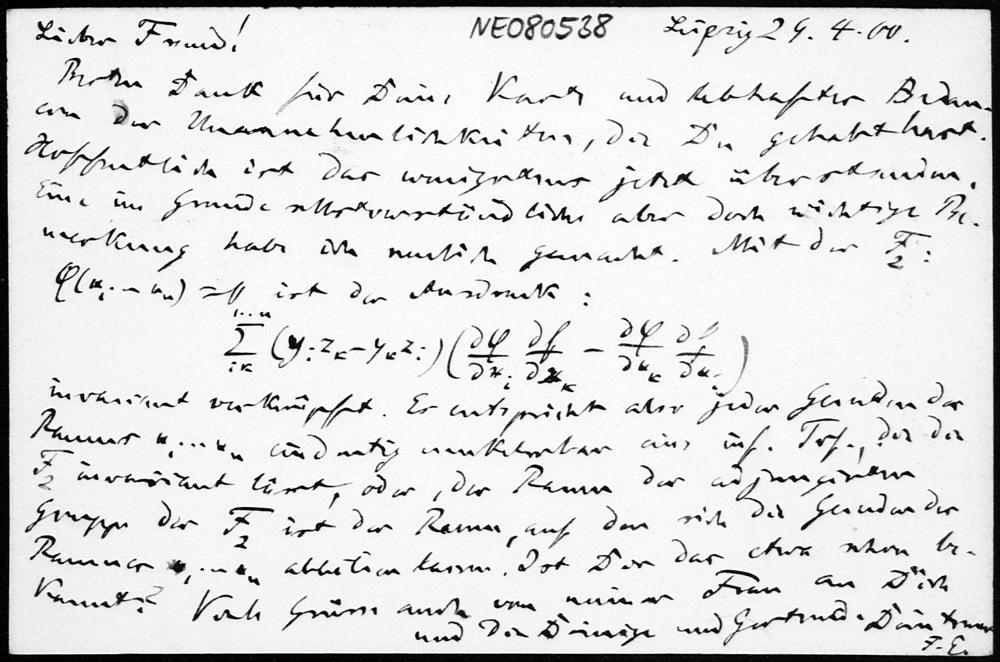 NEO80538
Lieber Freund! Leipzig 29. 4. 00.
Besten Dank für Deine Karte und lebhaftes Bedau-
ern der Unannehmlichkeiten, die Du gehabt hast.
Hoffentlich ist das wenigstens jetzt überstanden.
Eine im Grunde selbstverständliche aber doch wichtige Be-
merkung habe ich neulich gemacht. Mit der F₂:
φ(x₁ … xₙ) = 0 ist der Ausdruck:
∑ᵢₖ^{1…n} (yᵢ zₖ − yₖ zᵢ) (∂φ/∂xᵢ ∂f/∂xₖ − ∂φ/∂xₖ ∂f/∂xᵢ)
invariant verknüpft. Es entspricht also jeder Geraden des
Raumes x₁ … xₙ eindeutig umkehrbar eine inf. Trf., die die
F₂ invariant lässt, oder, der Raum der adjungirten
Gruppe der F₂ ist der Raum, auf den sich die Geraden des
Raumes x₁ … xₙ abbilden lassen. Ist Dir das etwa schon be-
kannt? Viele Grüsse auch von meiner Frau an Dich
und die Deinige und Gertrud. Dein treuer
F. E.